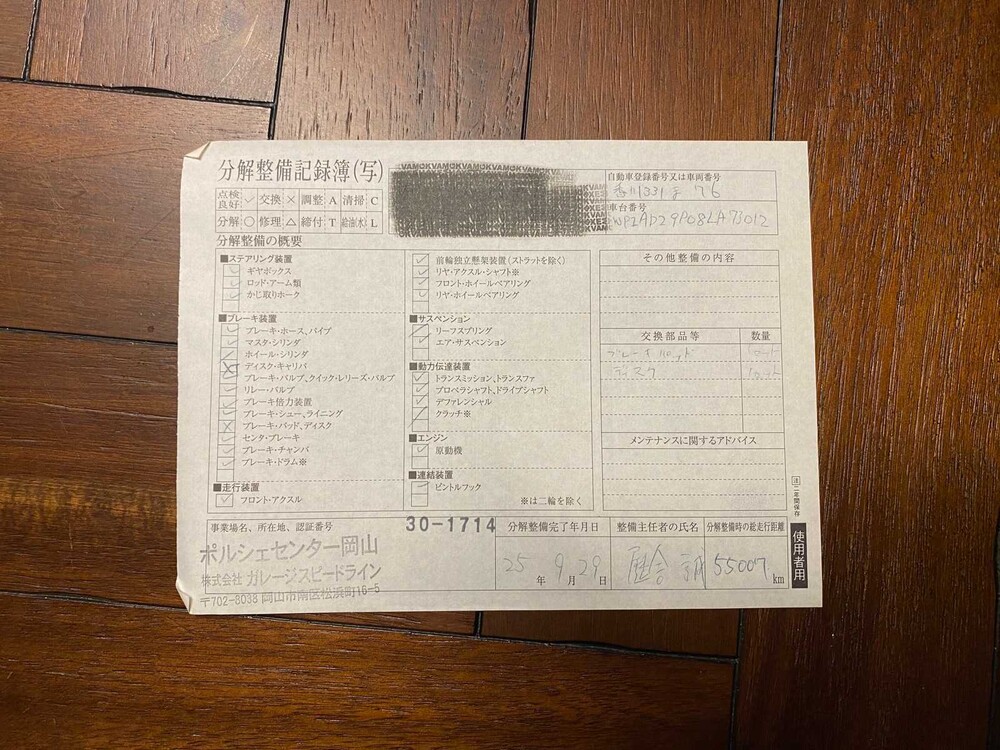 分解整備記録簿(写)
点検良好 ✓ 交換 × 調整 A 清掃 C
分解 ○ 修理 △ 締付 T 給油(水) L
自動車登録番号又は車両番号
香川331 76
車台番号
WP1AD29P08LA73012
分解整備の概要
■ステアリング装置
ギヤボックス
ロッド・アーム類
かじ取りホーク
■ブレーキ装置
ブレーキ・ホース、パイプ
マスタ・シリンダ
ホイール・シリンダ
ディスク・キャリパ
ブレーキ・バルブ、クイック・レリーズ・バルブ
リレー・バルブ
ブレーキ倍力装置
ブレーキ・シュー、ライニング
ブレーキ・パッド、ディスク
センタ・ブレーキ
ブレーキ・チャンバ
ブレーキ・ドラム※
■走行装置
フロント・アクスル
前輪独立懸架装置(ストラットを除く)
リヤ・アクスル・シャフト※
フロント・ホイールベアリング
リヤ・ホイールベアリング
■サスペンション
リーフスプリング
エア・サスペンション
■動力伝達装置
トランスミッション、トランスファ
プロペラシャフト、ドライブシャフト
デファレンシャル
クラッチ※
■エンジン
原動機
■連結装置
ピントルフック
※は二輪を除く
その他整備の内容
交換部品等 数量
ブレーキパッド
ディスク
メンテナンスに関するアドバイス
注 二年間保存
使用者用
事業場名、所在地、認証番号
30-1714
ポルシェセンター岡山
株式会社 ガレージスピードライン
〒702-8038 岡山市南区松浜町16-5
分解整備完了年月日
25年 9月 29日
整備主任者の氏名
分解整備時の総走行距離
55007 km